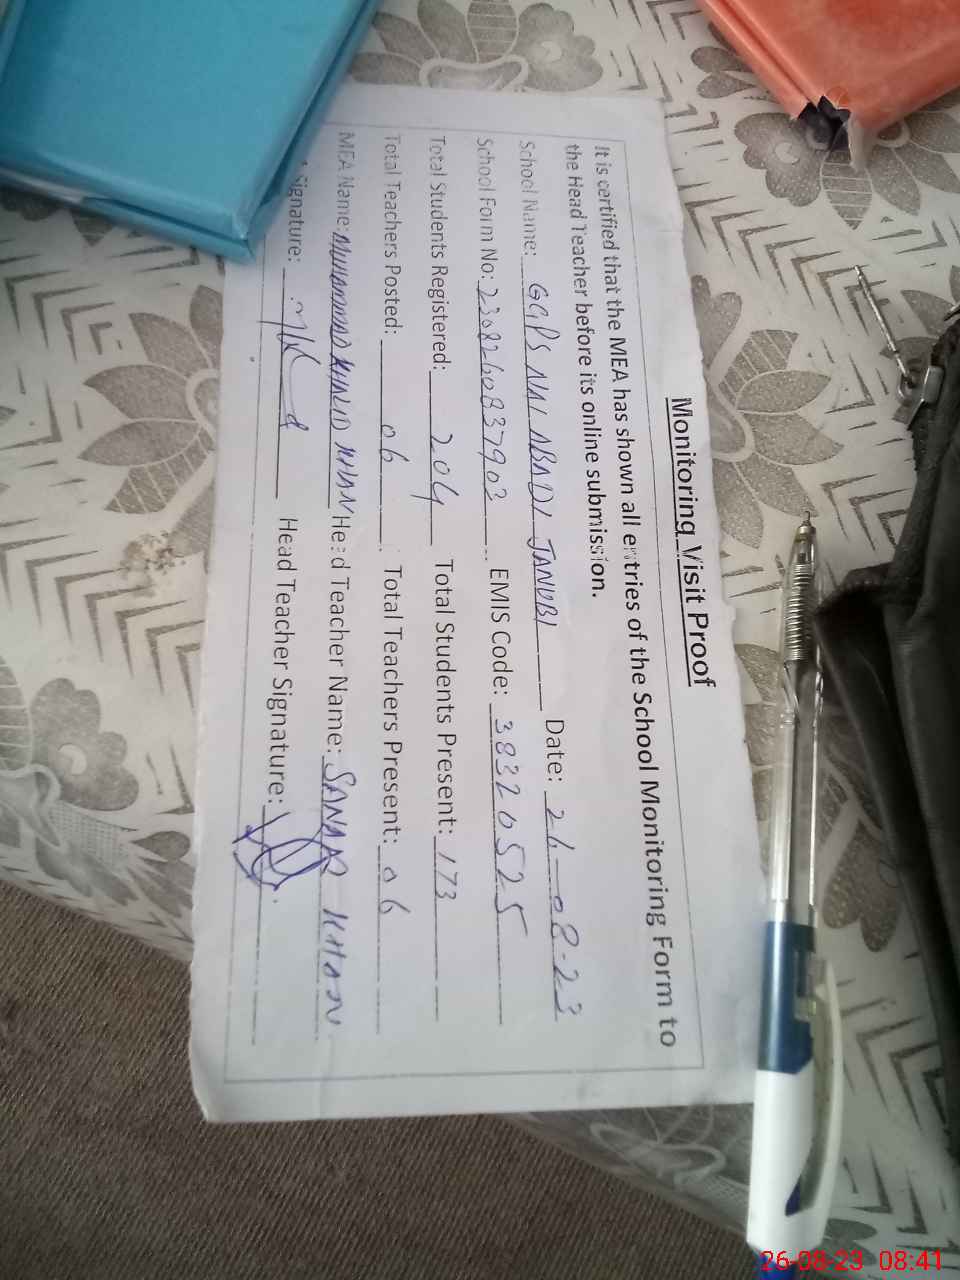 Monitoring Visit Proof
It is certified that the MEA has shown all entries of the School Monitoring Form to
the Head Teacher before its online submission.
School Name: GGPS NAI ABADI JANUBI Date: 26-08-23
School Form No: 2308260837903 EMIS Code: 38320525
Total Students Registered: 204 Total Students Present: 173
Total Teachers Posted: 06 Total Teachers Present: 06
MEA Name: MUHAMMAD KHALID KHAN Head Teacher Name: SANAR KHAN
Signature: Head Teacher Signature:
26-08-23 08:41